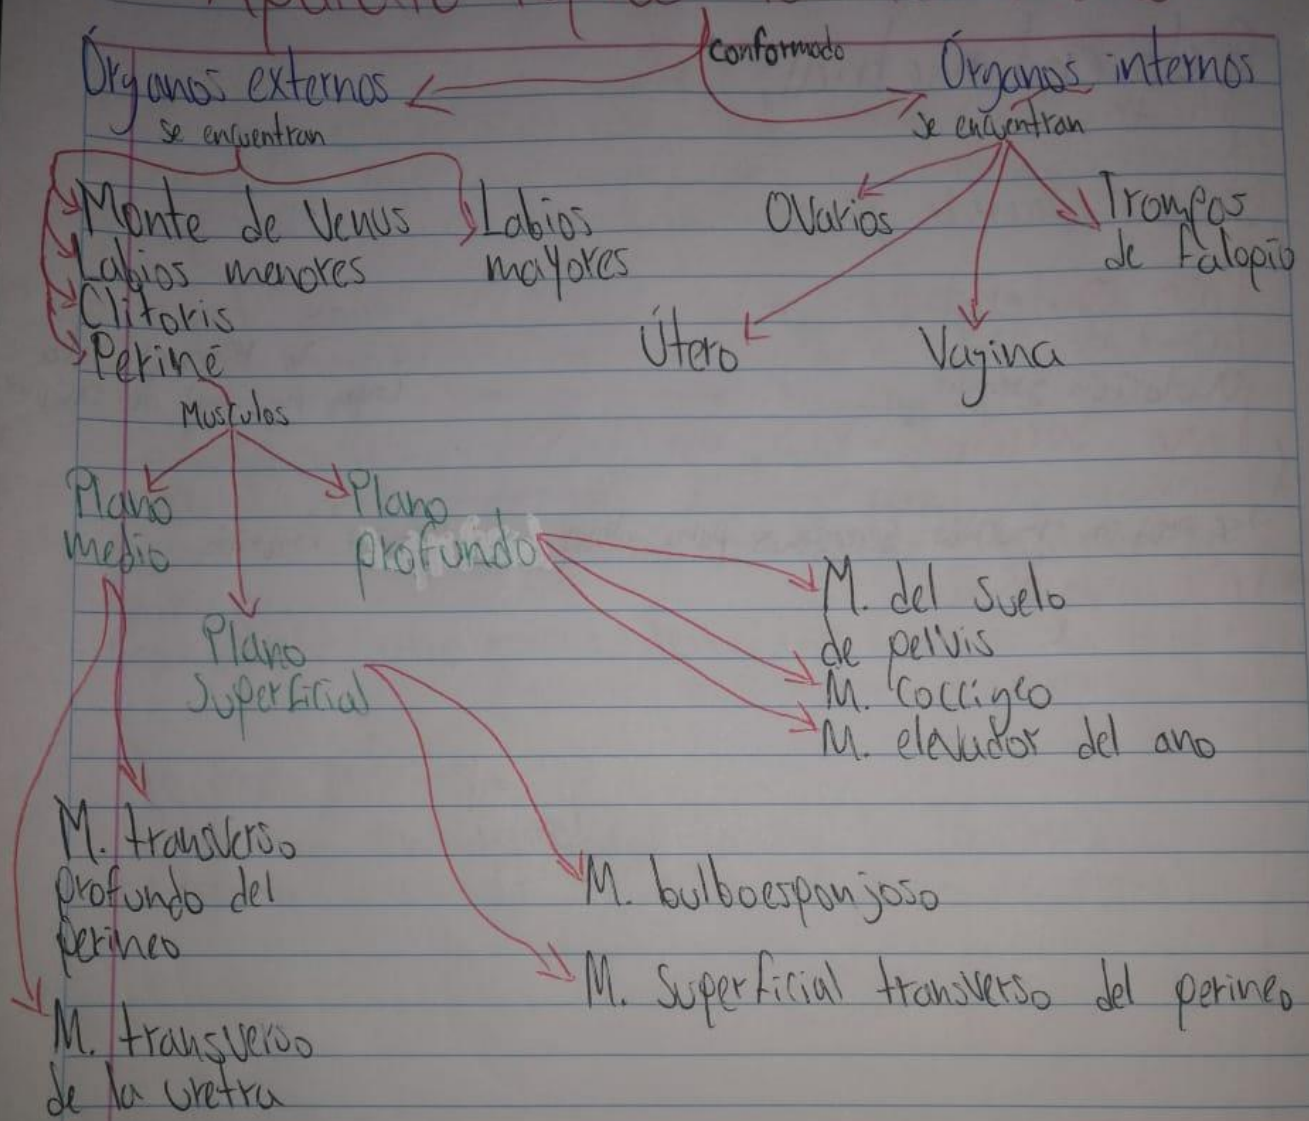 Aparato
conformado
Órganos externos
se encuentran
Monte de Venus
Labios menores
Clitoris
Periné
Labios
mayores
Musculos
Plano
medio
Plano
profundo
Plano
Superficial
M. transverso
profundo del
perineo
M. transverso
de la uretra
M. bulboesponjoso
M. Superficial transverso del perineo
M. del suelo
de pelvis
M. coccigeo
M. elevador del ano
Órganos internos
se encuentran
Ovarios
Útero
Vagina
Trompas
de falopio